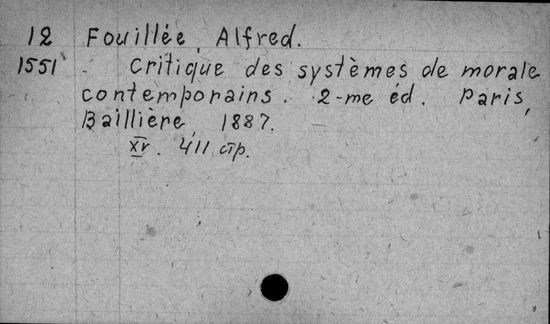 12 Fouillée, Alfred.
1551 Critique des systèmes de morale
contemporains. 2-me éd. Paris,
Baillière, 1887.
XV. 411 стр.